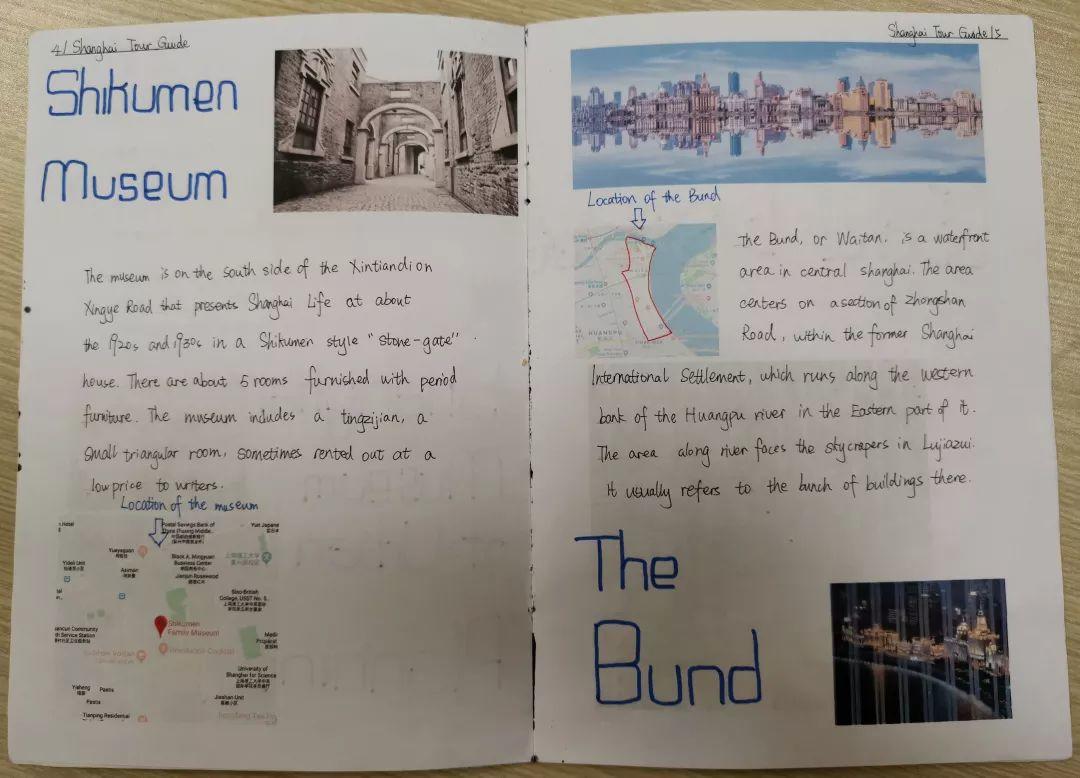 4/ Shanghai Tour Guide
Shikumen
Museum
The museum is on the south side of the Xintiandi on
Xingye Road that presents Shanghai Life at about
the 1920s and 1930s in a Shikumen style "stone-gate"
house. There are about 5 rooms furnished with period
furniture. The museum includes a tingzijian, a
small triangular room, sometimes rented out at a
low price to writers.
Location of the museum
t Hotel
Postal Savings Bank of
China (Fuxing Middle...
Yueyaguan
Yideli Unit
Black A. Mingyuan
Business Center
Aximan
Jianjun Rosewood
Sino-British
College, USST No. 5...
Shikumen
Family Museum
ancun Community
th Service Station
University of
Shanghai for Science
Yisheng
Pastis
Pastis
Jiashan Unit
Tianping Residential
Shanghai Tour Guide/5
Location of the Bund
The Bund, or Waitan, is a waterfront
area in central shanghai. The area
centers on a section of Zhongshan
Road, within the former Shanghai
International Settlement, which runs along the western
bank of the Huangpu river in the Eastern part of it.
The area along river faces the skycrapers in Lujiazui.
It usually refers to the bunch of buildings there.
HUANGPU
The
Bund